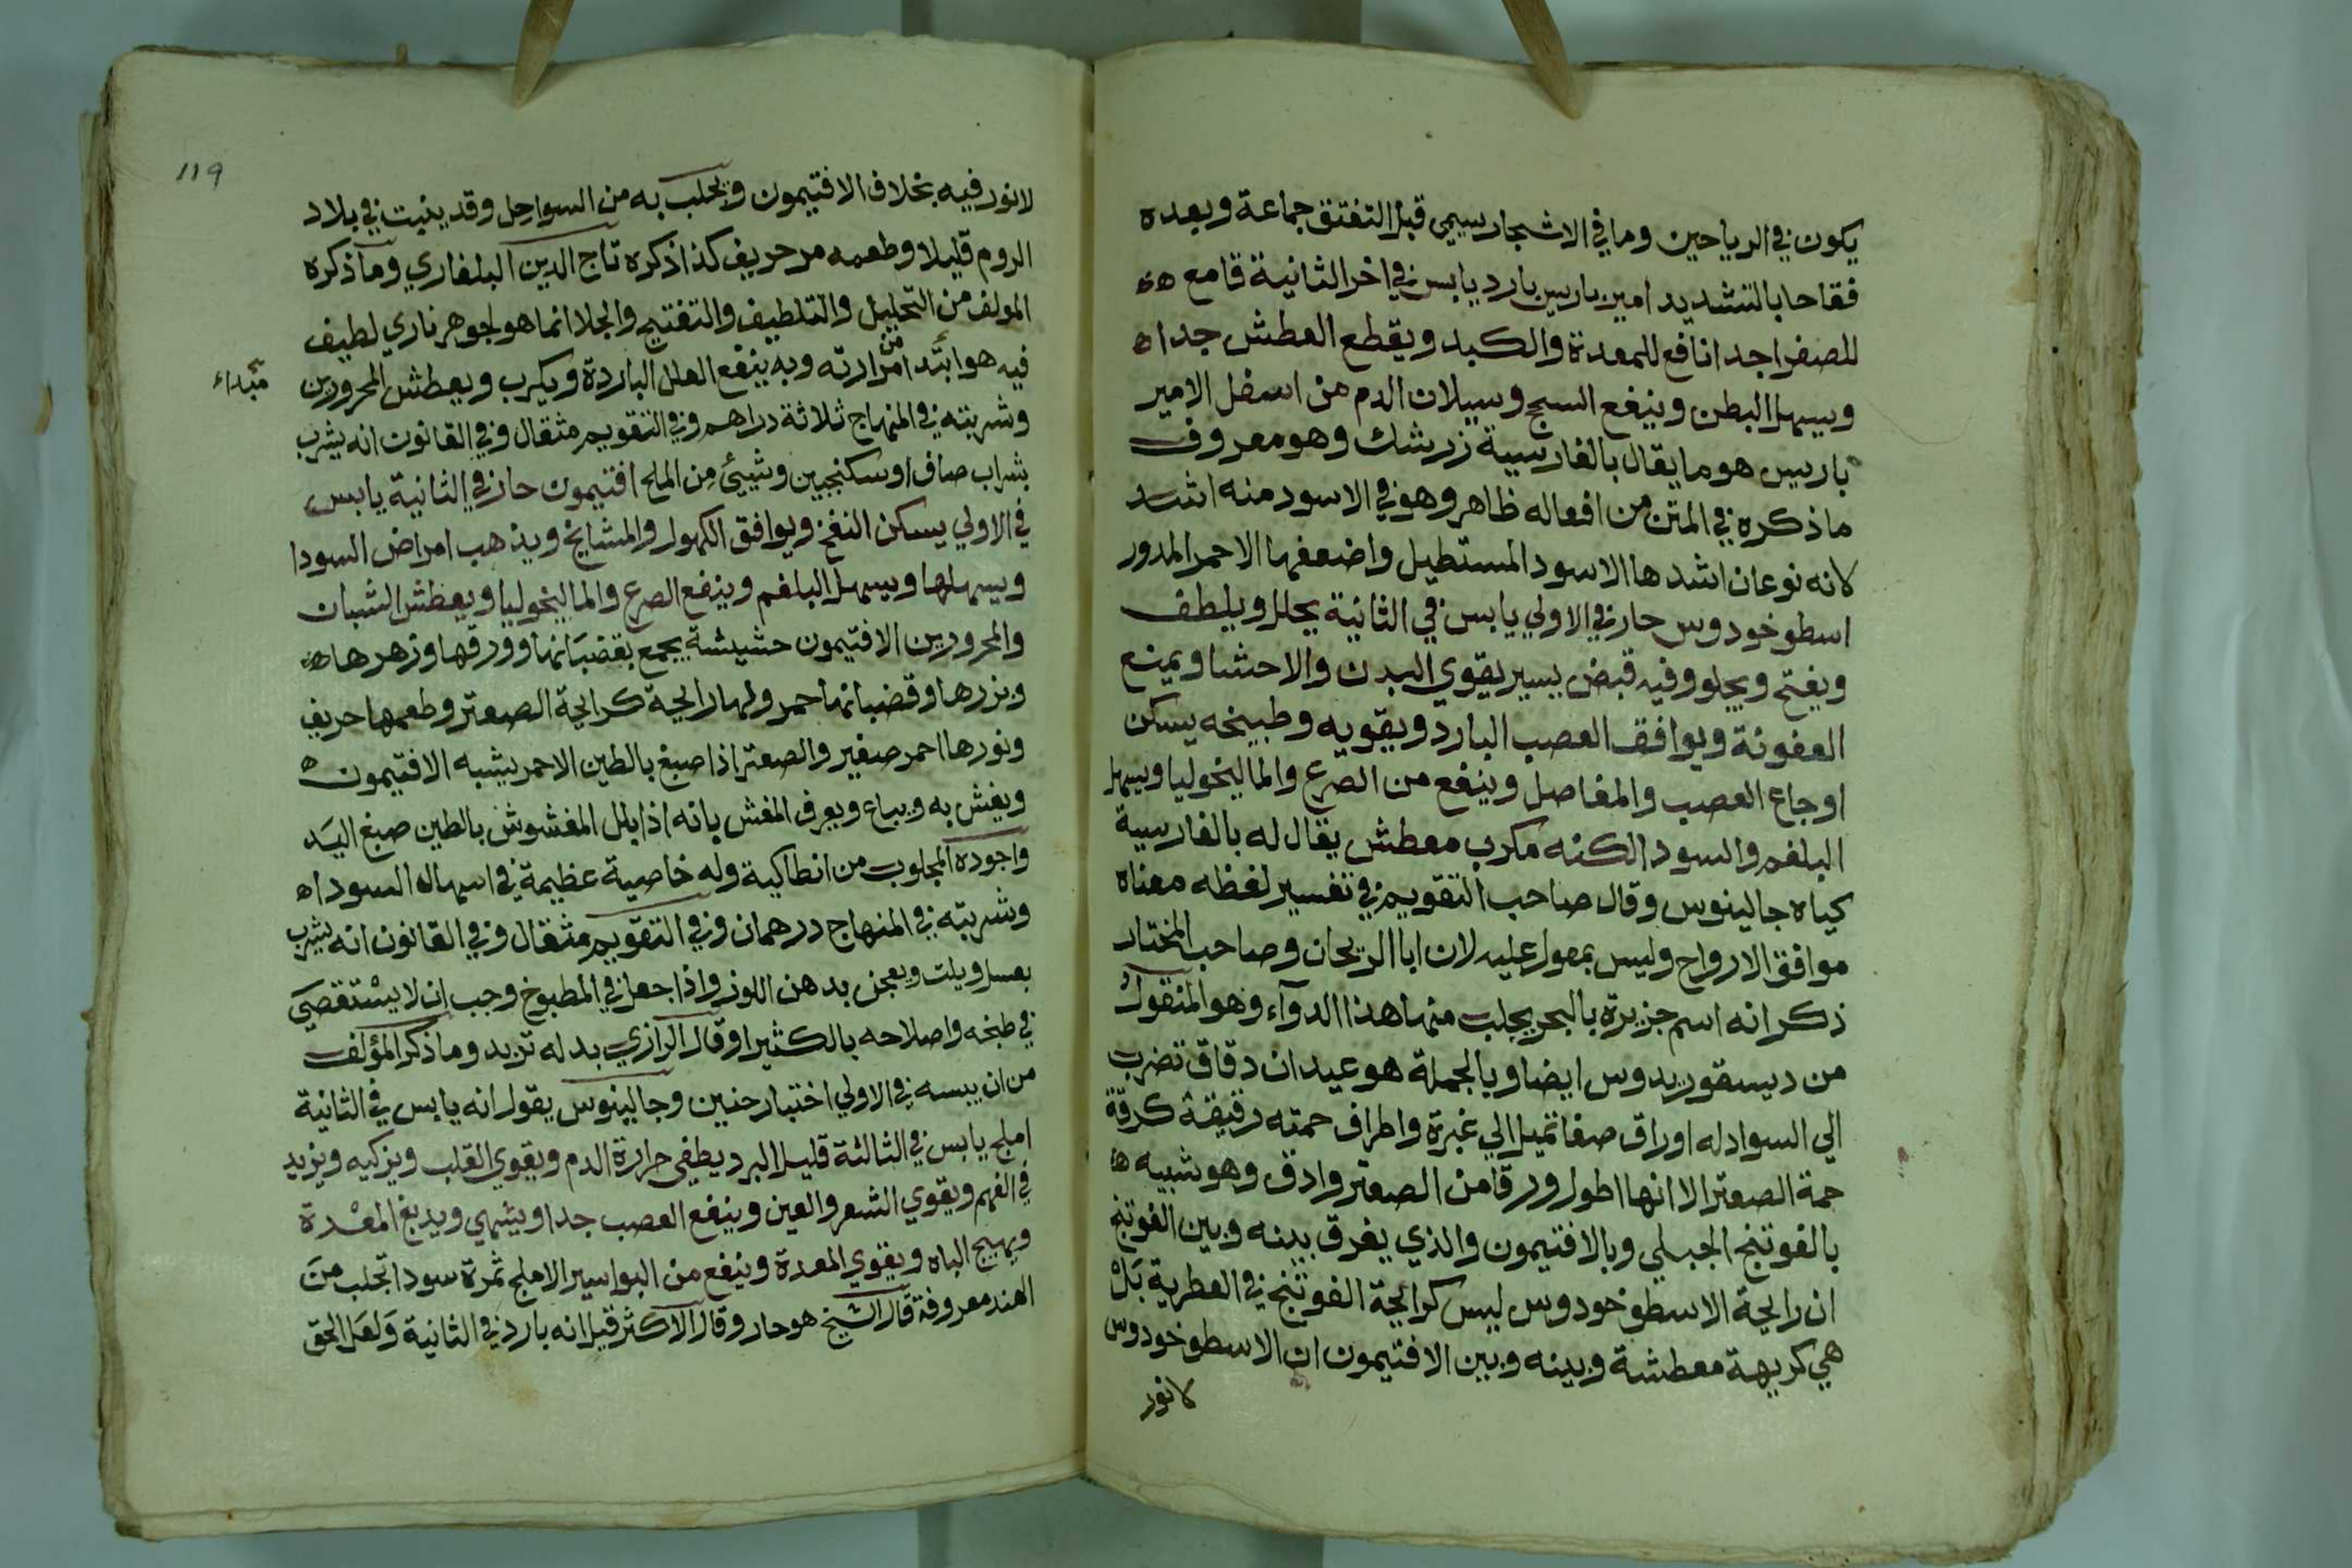 يكون في الرياحين وما في الاشجار سيمي قبل التفتق جماعة وبعده
فقاحا بالتشديد امير باريس بارد يابس في اخر الثانية قامع
للصفرا جدا نافع للمعدة والكبد ويقطع العطش جدا
ويسهل البطن وينفع السحج وسيلان الدم من اسفل الامير
باريس هو ما يقال بالفارسية زرشك وهو معروف
ما ذكره في المتن من افعاله ظاهر وهو في الاسود منه اشد
لانه نوعان اشدها الاسود المستطيل واضعفها الاحمر المدور
اسطوخودوس حار في الاولي يابس في الثانية يحلل ويلطف
ويفتح ويجلو وفيه قبض يسير يقوي البدن والاحشا ويمنع
العفونة ويوافق العصب البارد ويقويه وطبيخه يسكن
اوجاع العصب والمفاصل وينفع من الصرع والماليخوليا ويسهل
البلغم والسودا لكنه مكرب معطش يقال له بالفارسية
كياه جالينوس وقال صاحب التقويم في تفسير لفظه معناه
موافق الارواح وليس بمعول عليه لان ابا الريحان وصاحب المختار
ذكر انه اسم جزيرة بالبحر يجلب منها هذا الدوآء وهو المنقول
من ديسقوريدوس ايضا وبالجملة هو عيدان دقاق تضرب
الي السواد له اوراق صغا تميل الي غبرة واطراف حمته رقيقة كرقة
حمة الصعتر الا انها اطول ورقا من الصعتر وادق وهو شبيه
بالفوتنج الجبلي وبالافتيمون والذي يفرق بينه وبين الفوتنج
ان رايحة الاسطوخودوس ليس كرايحة الفوتنج في العطرية بل
هي كريهة معطشة وبينه وبين الافتيمون ان الاسطوخودوس
لانور
119
لانور فيه بخلاف الافتيمون ويجلب به من السواحل وقد ينبت في بلاد
الروم قليلا وطعمه مر حريف كذا ذكره تاج الدين البلغاري وما ذكره
المولف من التحليل والتلطيف والتفتيح والجلا انما هو لجوهر ناري لطيف
فيه هو ابتدا من مرارته وبه ينفع العلل الباردة ويكرب ويعطش المحرورين
مبداء
وشربته في المنهاج ثلاثة دراهم وفي التقويم مثقال وفي القانون انه يشرب
بشراب صاف او سكنجبين وشيئ من الملح افتيمون حار في الثانية يابس
في الاولي يسكن النفخ ويوافق الكهول والمشايخ ويذهب امراض السودا
ويسهلها ويسهل البلغم وينفع الصرع والماليخوليا ويعطش الشبان
والمحرورين الافتيمون حشيشة يجمع بقضبانها وورقها وزهرها
وبزرها وقضبانها حمر ولها رايحة كرايحة الصعتر وطعمها حريف
ونورها احمر صغير والصعتر اذا صبغ بالطين الاحمر يشبه الافتيمون
ويغش به ويباع ويعرف المغش بانه اذا بلل المغشوش بالطين صبغ اليد
واجوده المجلوب من انطاكية وله خاصية عظيمة في اسهال السودا
وشربته في المنهاج درهمان وفي التقويم مثقال وفي القانون انه يشرب
بعسل ويلت ويعجن بدهن اللوز واذا جعل في المطبوخ وجب ان لا يستقصي
في طبخه واصلاحه بالكثيرا وقال الرازي بدله تربد وما ذكر المؤلف
من ان يبسه في الاولي اختيار حنين وجالينوس يقول انه يابس في الثانية
املج يابس في الثالثة قليل البرد يطفي حرارة الدم ويقوي القلب ويزكيه ويزيد
في الفهم ويقوي الشعر والعين وينفع العصب جدا ويشهي ويدبغ المعدة
ويهيج الباه ويقوي المعدة وينفع من البواسير الاملج ثمرة سودا تجلب من
الهند معروفة قال الشيخ هو حار وقال الاكثر قيل انه بارد في الثانية ولعل الحق